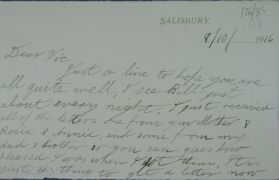 SALISBURY.
8/10/ 1916
Dear Vic
Just a line to hope you are
all quite well, I see Bill just
about every night, I just received
all of the letters die from our Mother &
Rosie & Annie, and some from my
dad & brother so you can guess how
pleased I was when I got them. It is
just the thing to get a letter now